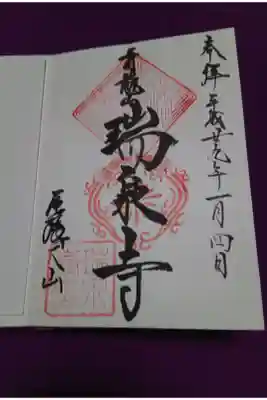 奉拝 平成廿九年一月四日
青龍山
瑞泉寺
犬山